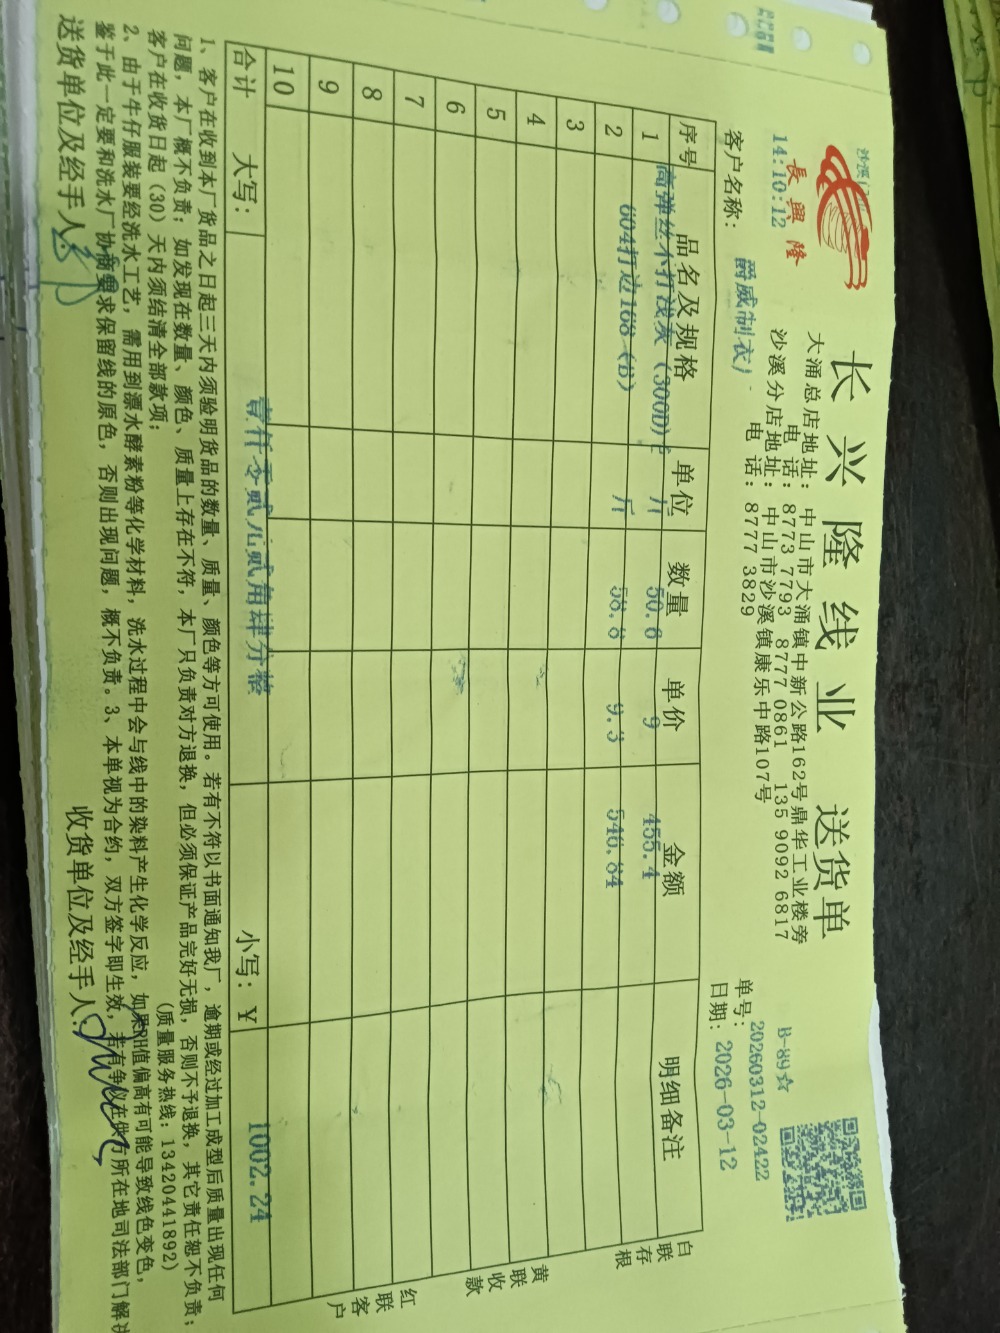 长兴隆线业 送货单
長興隆
14:10:12
大涌总店地址:中山市大涌镇中新公路162号鼎华工业楼旁
电 话:8773 7793 8777 0861 135 9092 6817
沙溪分店地址:中山市沙溪镇康乐中路107号
电 话:8777 3829
B-89☆
单号:20260312-02422
客户名称: 爵威制衣
日期:2026-03-12
序号 品名及规格 单位 数量 单价 金额 明细备注
1 高弹丝不打浅灰(300D) 斤 50.6 9 455.4
2 604打边168(B) 斤 58.8 9.3 546.84
3
4
5
6
7
8
9
10
合计 大写: 壹仟零贰元贰角肆分整 小写:¥ 1002.24
白联存根
黄联收款
红联客户
1、客户在收到本厂货品之日起三天内须验明货品的数量、质量、颜色等方可使用。若有不符以书面通知我厂,逾期或经过加工成型后质量出现任何
问题,本厂概不负责;如发现在数量、颜色、质量上存在不符,本厂只负责对方退换,但必须保证产品完好无损,否则不予退换,其它责任恕不负责;
客户在收货日起(30)天内须结清全部款项;
(质量服务热线:13420441892)
2、由于牛仔服装要经洗水工艺,需用到漂水酵素粉等化学材料,洗水过程中会与线中的染料产生化学反应,如果PH值偏高有可能导致线色变色,
鉴于此一定要和洗水厂协商要求保留线的原色,否则出现问题,概不负责。3、本单视为合约,双方签字即生效,若有争议在供方所在地司法部门解决
送货单位及经手人:
收货单位及经手人: